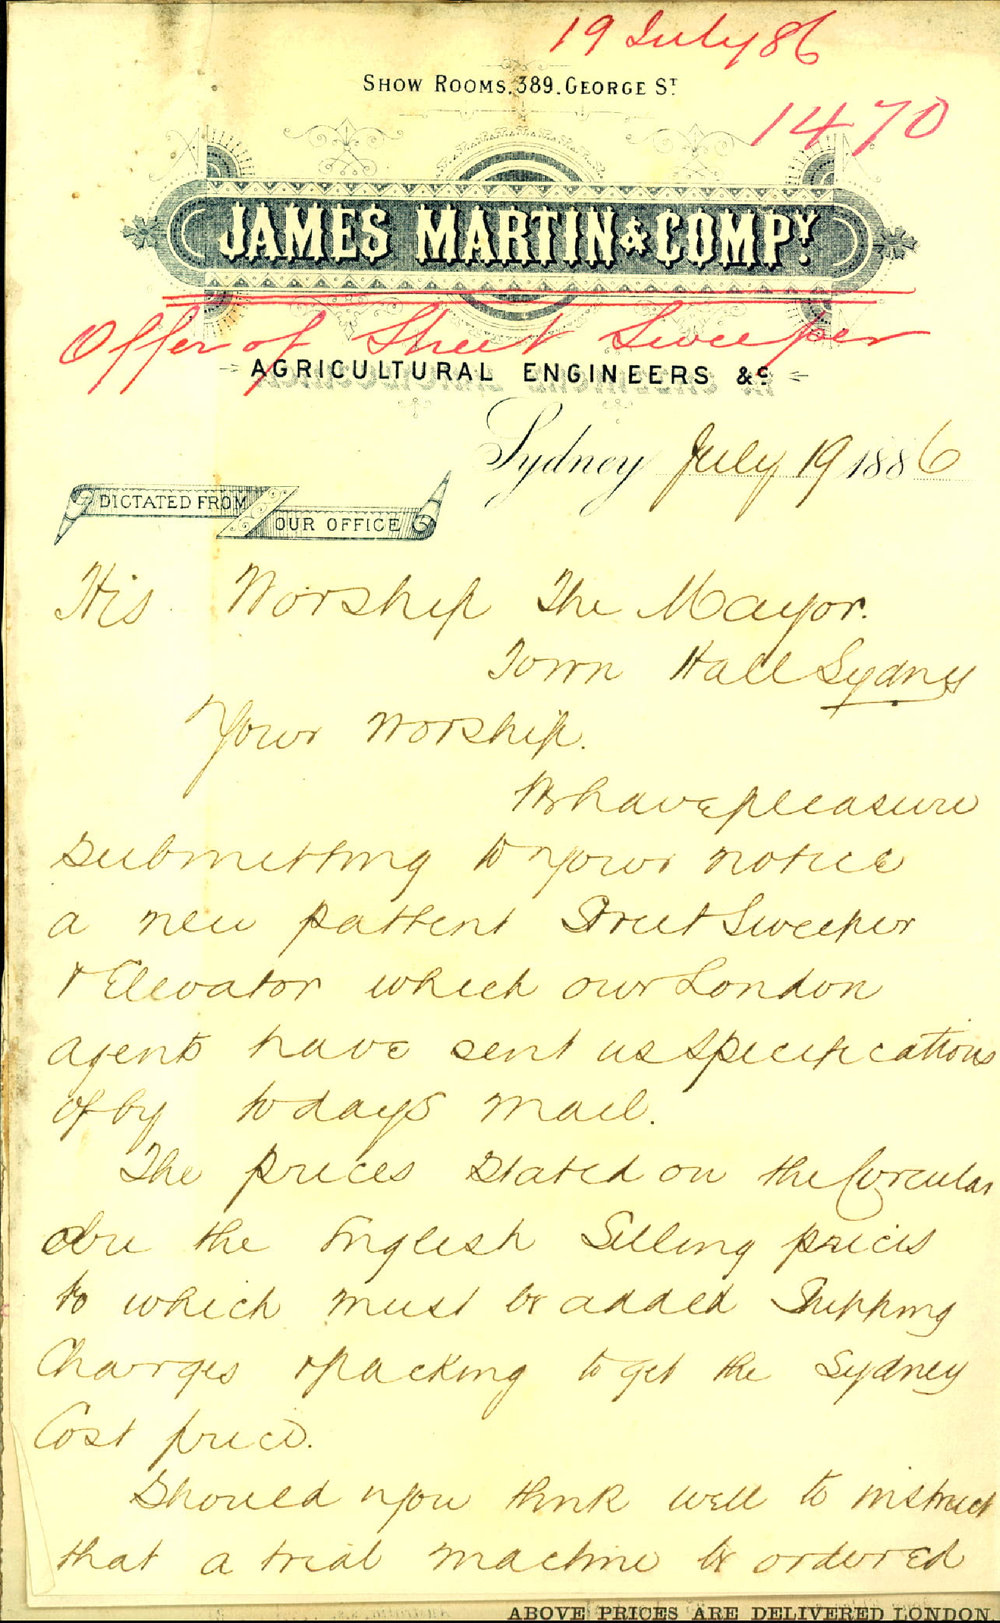 19 July 86
SHOW ROOMS. 389. GEORGE ST
1470
JAMES MARTIN & COMPY.
Offer of Street Sweeper
AGRICULTURAL ENGINEERS &c
Sydney July 19 1886
DICTATED FROM
OUR OFFICE
His Worship The Mayor.
Town Hall Sydney
Your Worship.
We have pleasure
Submitting to your notice
a new pattent Street Sweeper
& Elevator which our London
agents have sent us specifications
of by todays mail.
The prices stated on the Circular
are the English Selling prices
to which must be added Shipping
Charges & packing to get the Sydney
Cost price.
Should you think well to instruct
that a trial machine be ordered
ABOVE PRICES ARE DELIVERED LONDON